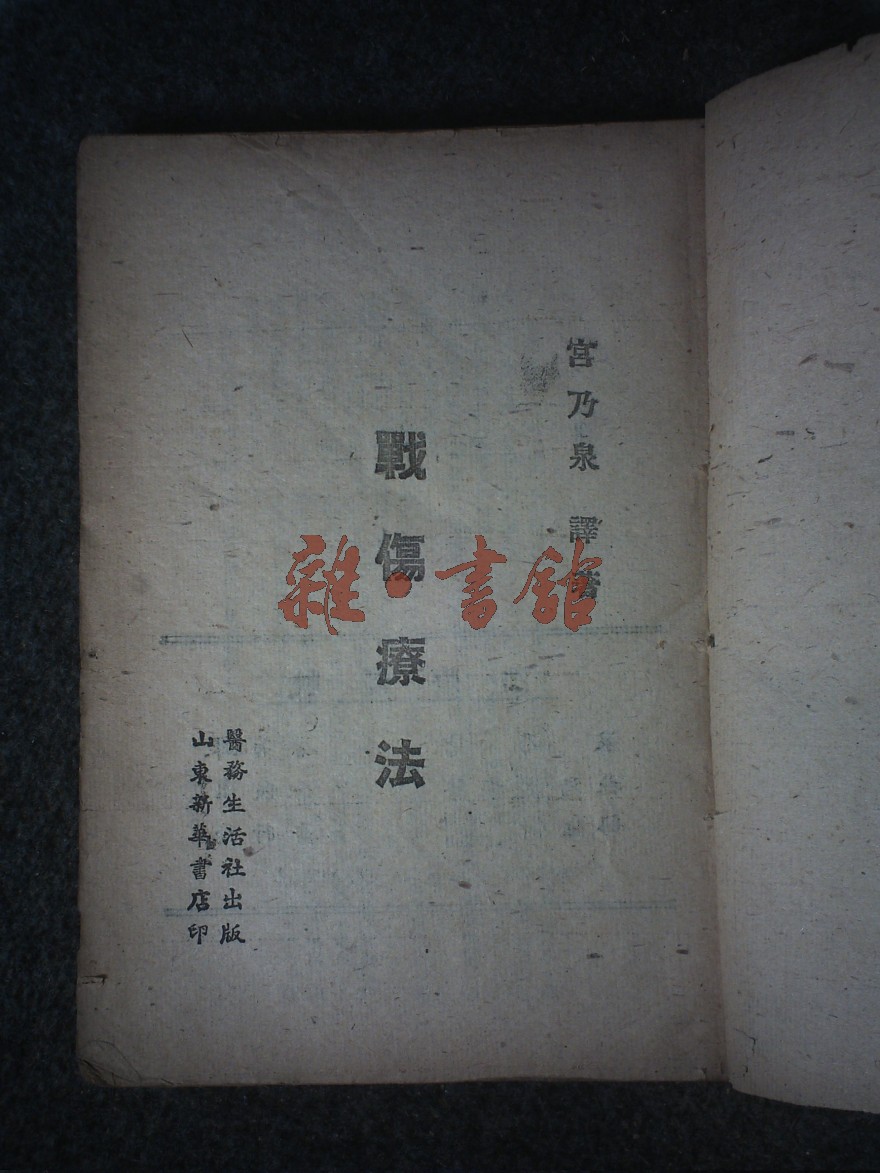 宮乃泉 譯著
戰傷療法
醫務生活社出版
山東新華書店印
雜·書館